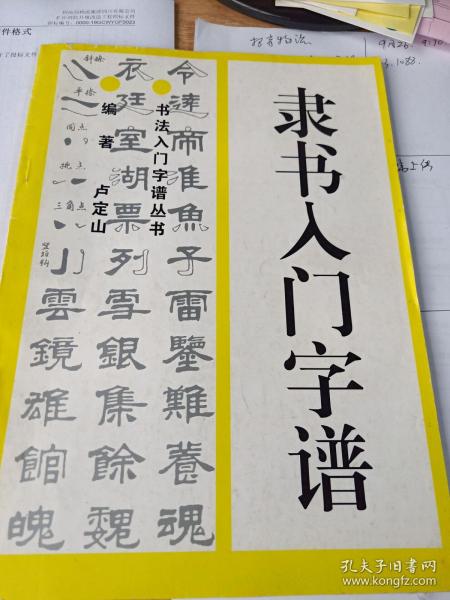 隶书入门字谱
书法入门字谱丛书
编著 卢定山
令逮帝淮魚子雷鑒難養魂
衣廷室湖票列雪銀集餘魏
斜捺
平捺
圆点
挑点
三角点
小雲鏡雄館魄
件格式
0000-180CWY0F2023
孔夫子旧书网
www.kongfz.com